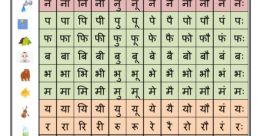 प पा पि पी पु पू पे पै पो पौ पं पः
फ फा फि फी फु फू फे फै फो फौ फं फः
ब बा बि बी बु बू बे बै बो बौ बं बः
भ भा भि भी भु भू भे भै भो भौ भं भः
म मा मि मी मु मू मे मै मो मौ मं मः
य या यि यी यु यू ये यै यो यौ यं यः
र रा रि री रु रू रे रै रो रौ रं रः